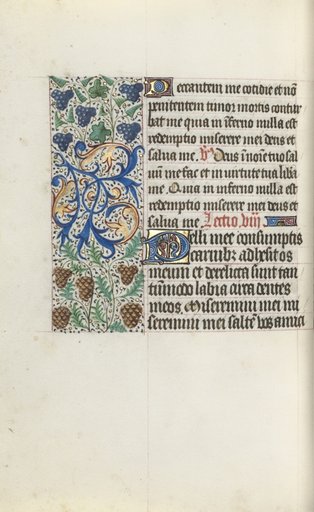 Peccantem me cotidie et nō
penitentem timor mortis contur
bat me quia in īferno nulla est
redemptio miserere mei deus et
salua me. V̄s Deus ī noīe tuo sal
uū me fac et in uirtute tua libā
me. Quia in inferno nulla est
redemptio miserere mei deus et
salua me. Lectio. viij
Pelli mee consumptis
carnibz adhesit os
meum et derelicta sunt tan
tūmodo labia circa dentes
meos. Miseremini mei mi
seremini mei saltē vos amici